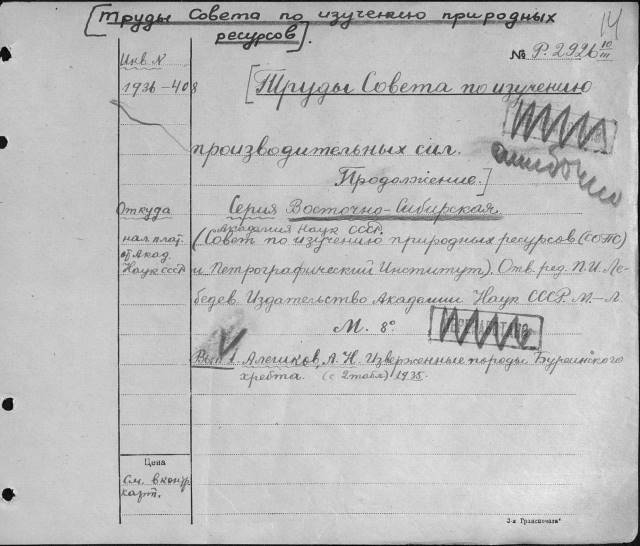 [Труды Совета по изучению природных
ресурсов].
14
№ Р. 2926 10/III
Инв. N
1936-408
[Труды Совета по изучению
производительных сил.
ошибочно
Продолжение.]
Откуда
нал. плат.
от Акад.
Наук СССР
Серия Восточно-Сибирская
Академия Наук СССР.
(Совет по изучению природных ресурсов (СОПС)
и Петрографический Институт). Отв. ред. П. И. Ле-
бедев. Издательство Академии Наук СССР. М.-Л.
М. 8°
Вып. 1. Алешков, А. Н. Изверженные породы Буреинского
хребта. (с 2 табл.) 1935.
Цена
См. в контр.
карт.
3-я Транспечать"